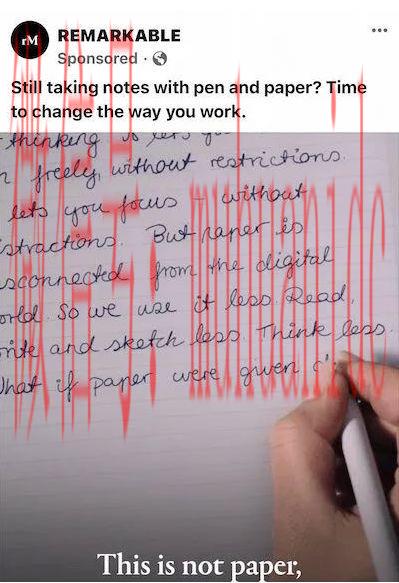 rM
REMARKABLE
Sponsored ·
Still taking notes with pen and paper? Time
to change the way you work.
thinking
n freely, without restrictions.
lets you focus - without
istractions. But paper is
sconnected from the digital
orld. So we use it less. Read,
rite and sketch less. Think less.
hat if paper were given
This is not paper,